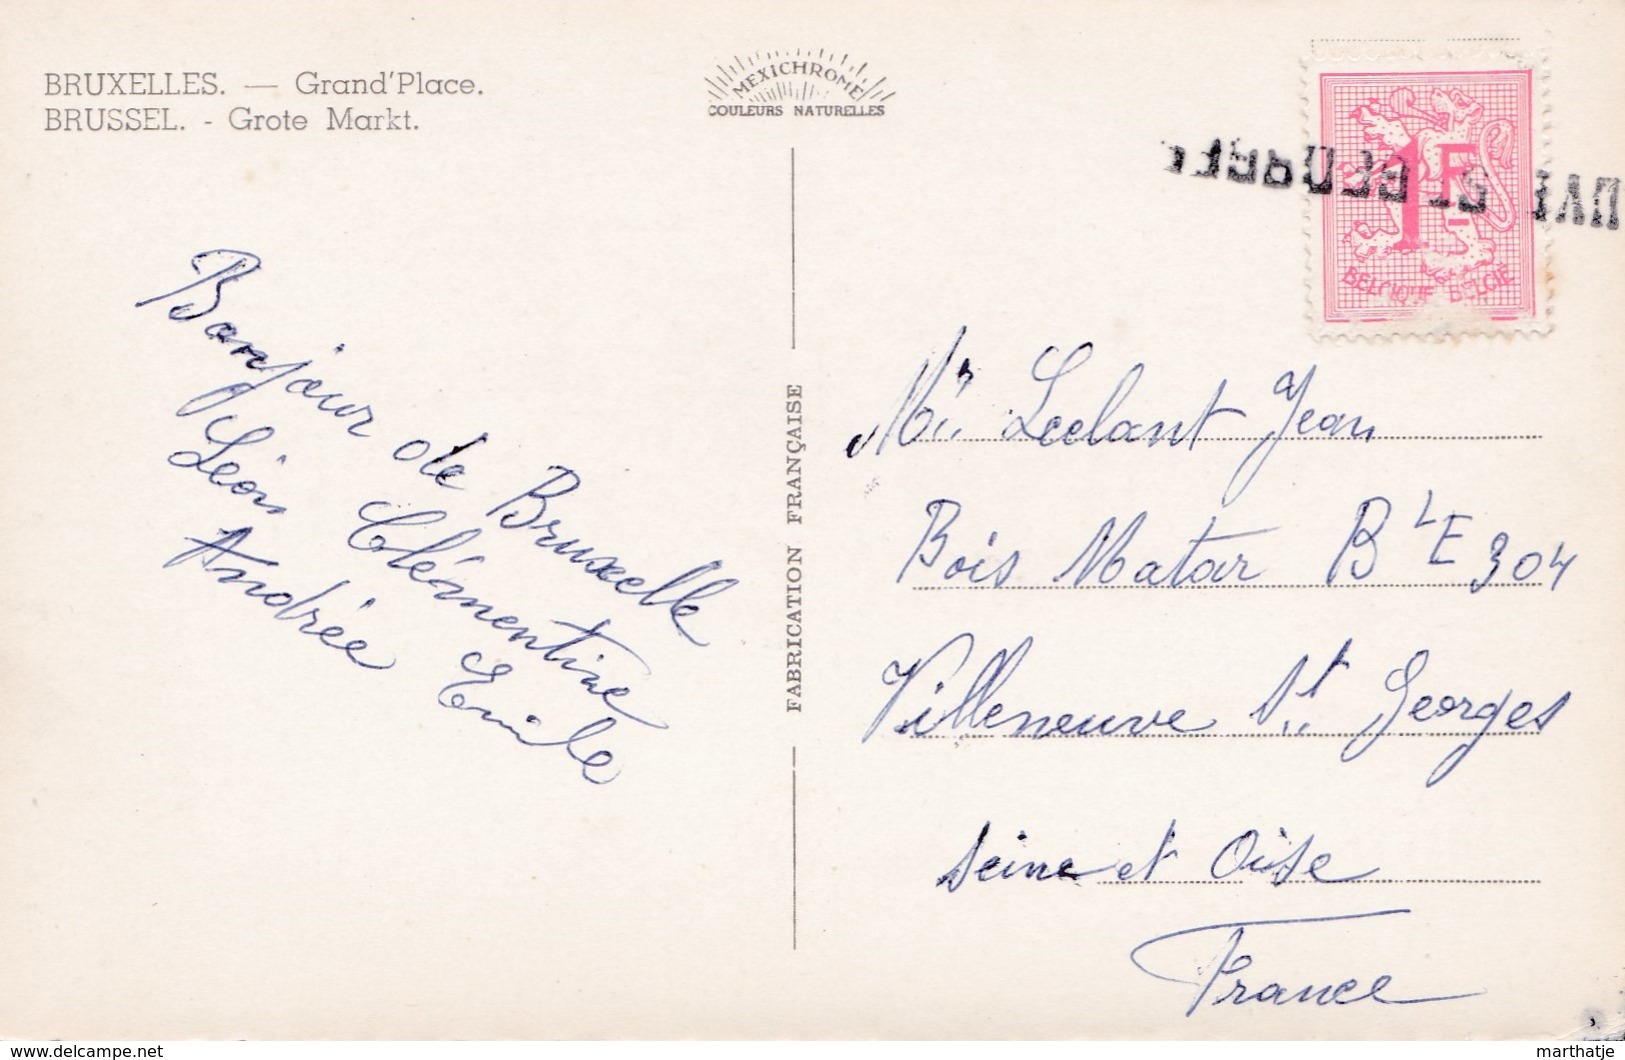 BRUXELLES. — Grand'Place.
BRUSSEL. - Grote Markt.
MEXICHROME
COULEURS NATURELLES
1F
BELGIQUE BELGIË
Bonjour de Bruxelle
Léon Clémentine
Andrée Emile
FABRICATION FRANÇAISE
Mr Leclant Jean
Bois Matar B LE 304
Villeneuve St Georges
Seine et Oise
France
delcampe.net
marthatje